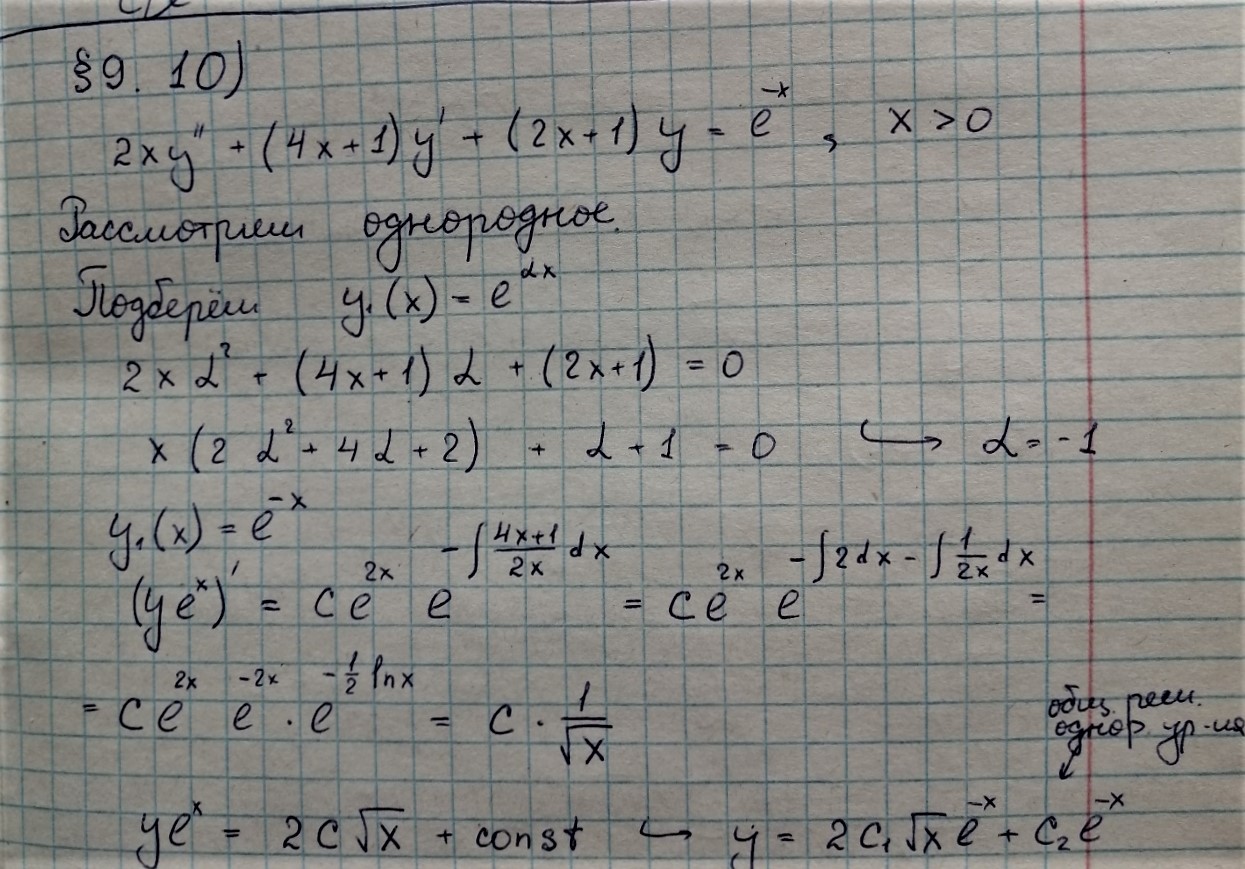 §9. 10)
2xy'' + (4x+1)y' + (2x+1)y = e^{-x}, x > 0
Рассмотрим однородное.
Подберём y₁(x) = e^{αx}
2xα² + (4x+1)α + (2x+1) = 0
x(2α² + 4α + 2) + α + 1 = 0 ↪ α = -1
y₁(x) = e^{-x}
(ye^x)' = ce^{2x} e^{-∫\frac{4x+1}{2x}dx} = ce^{2x} e^{-∫2dx - ∫\frac{1}{2x}dx} =
= ce^{2x} e^{-2x} · e^{-\frac{1}{2}lnx} = c · \frac{1}{√x}
общ. реш.
однор. ур-ия
ye^x = 2c√x + const ↪ y = 2c₁√x e^{-x} + c₂e^{-x}